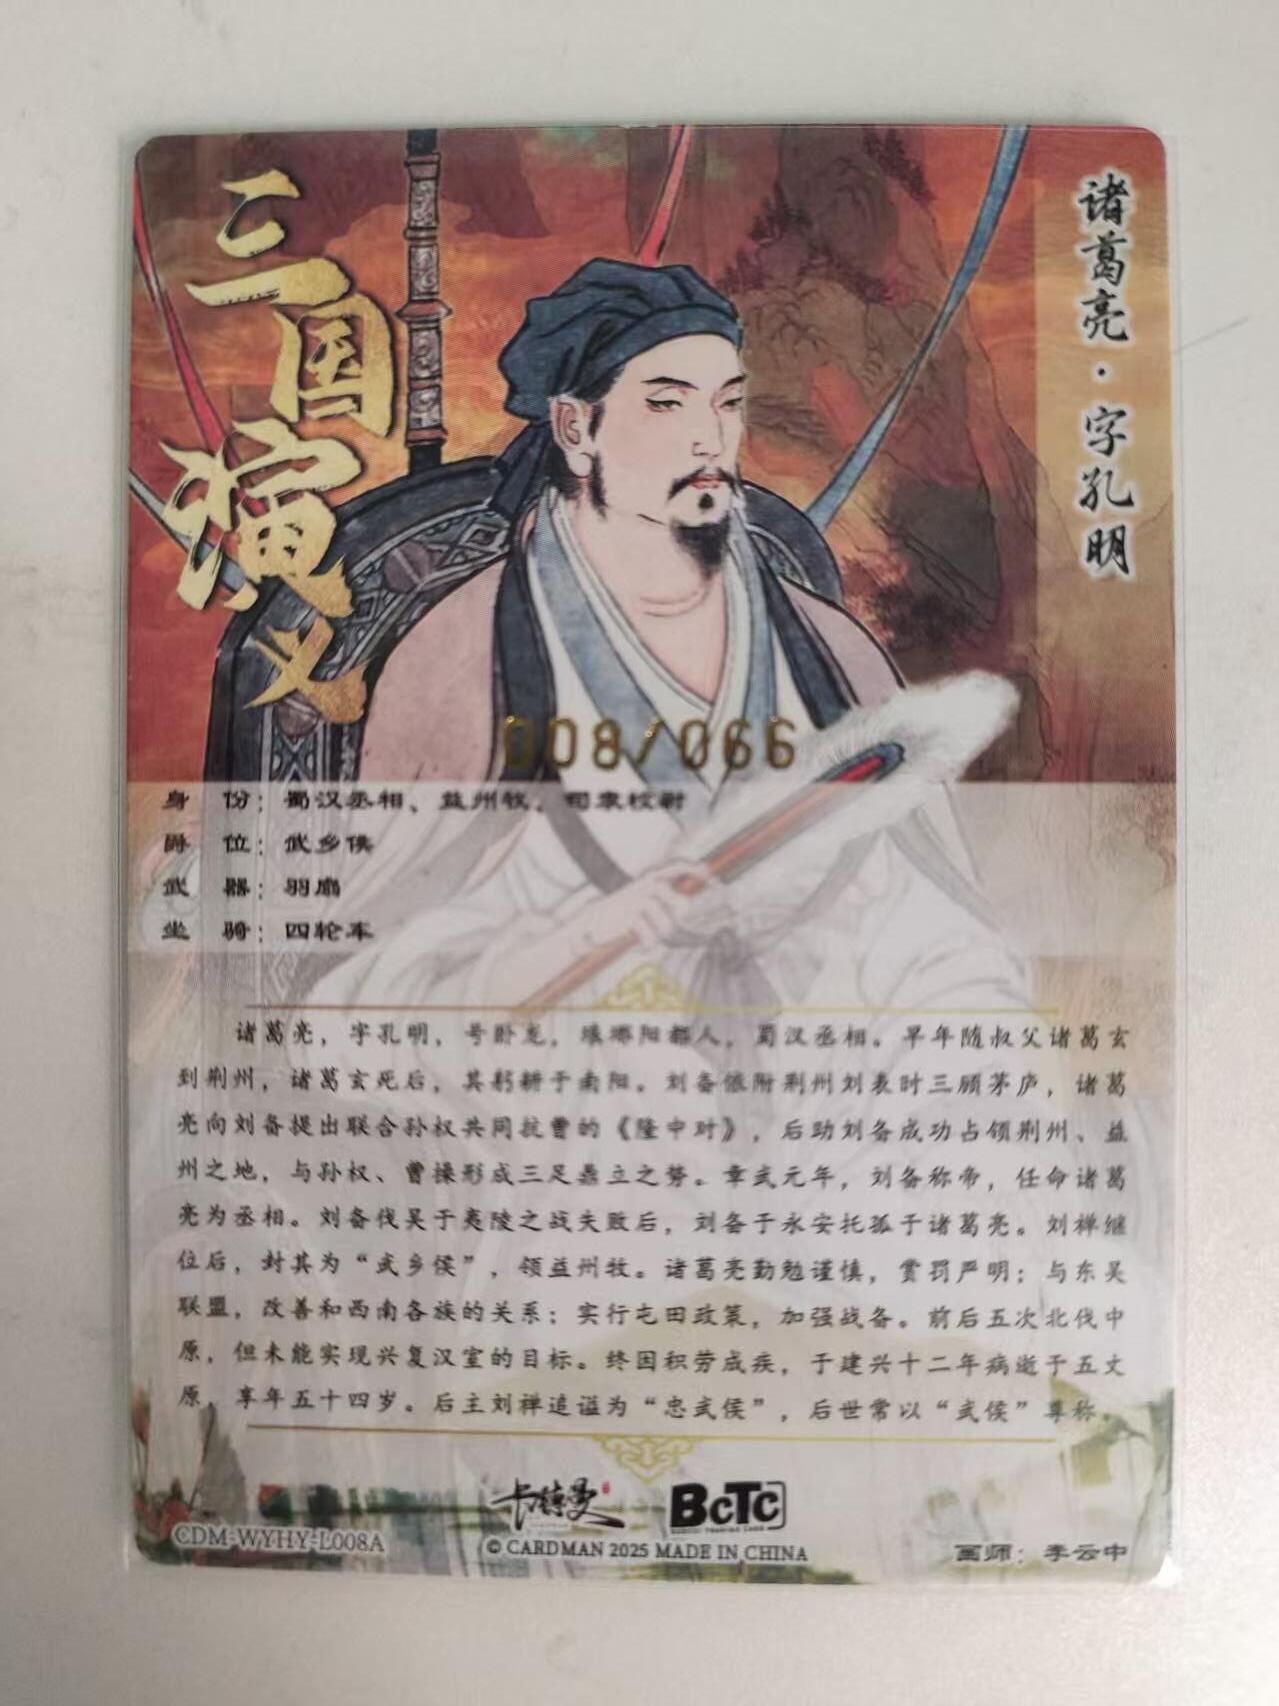 三国演义
诸葛亮·字孔明
008/066
身 份：蜀汉丞相、益州牧、司隶校尉
爵 位：武乡侯
武 器：羽扇
坐 骑：四轮车
诸葛亮，字孔明，号卧龙，琅琊阳都人，蜀汉丞相。早年随叔父诸葛玄
到荆州，诸葛玄死后，其躬耕于南阳。刘备依附荆州刘表时三顾茅庐，诸葛
亮向刘备提出联合孙权共同抗曹的《隆中对》，后助刘备成功占领荆州、益
州之地，与孙权、曹操形成三足鼎立之势。章武元年，刘备称帝，任命诸葛
亮为丞相。刘备伐吴于夷陵之战失败后，刘备于永安托孤于诸葛亮。刘禅继
位后，封其为“武乡侯”，领益州牧。诸葛亮勤勉谨慎，赏罚严明；与东吴
联盟，改善和西南各族的关系；实行屯田政策，加强战备。前后五次北伐中
原，但未能实现兴复汉室的目标。终因积劳成疾，于建兴十二年病逝于五丈
原，享年五十四岁。后主刘禅追谥为“忠武侯”，后世常以“武侯”尊称。
卡德曼
BCTC
CDM-WYHY-L008A
© CARDMAN 2025 MADE IN CHINA
画师：李云中